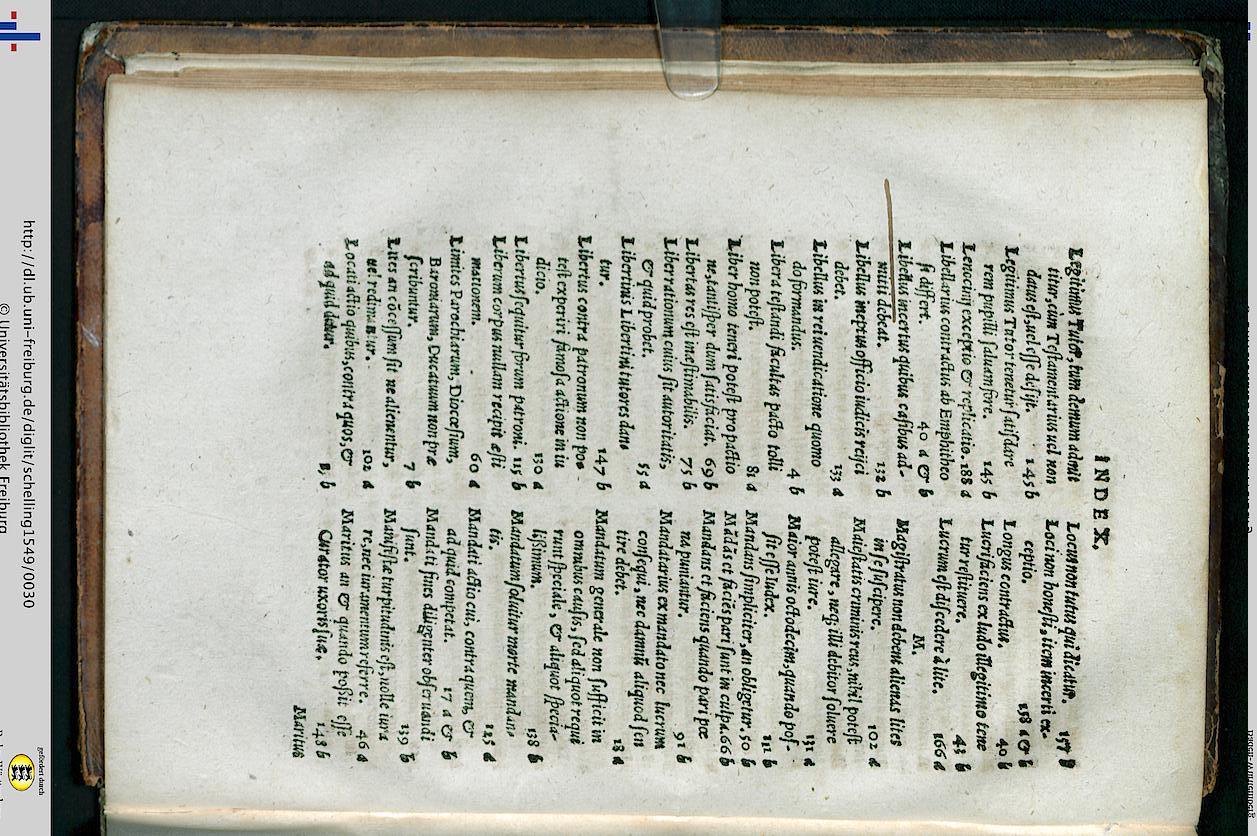 INDEX.
Legitimus Tutor, tum demum admit
titur, cum Testamentarius uel non
datus est, uel esse desijt. 145 b
Legitimus Tutor tenetur satisdare
rem pupilli saluam fore. 145 b
Lenocinij exceptio & replicatio. 188 a
Libellarius contractus ab Emphitheo
si differt. 40 a & b
Libellus incertus quibus casibus ad-
mitti debeat. 132 b
Libellus ineptus officio iudicis reijci
debet. 133 a
Libellus in rei uendicatione quomo
do formandus. 4 b
Libera testandi facultas pacto tolli
non potest. 81 a
Liber homo teneri potest propactio
ne, tantisper dum satisfaciat. 69 b
Libertas res est inæstimabilis. 75 b
Liberrationum cuius sit autoritatis,
& quid probet. 55 a
Libertinis Libertini tutores dan=
tur. 147 b
Libertus contra patronum non po=
test experiri famosa actione in iu
dicio. 130 a
Libertus sequitur forum patroni. 115 b
Liberum corpus nullam recipit æsti
mationem. 60 a
Limites Parochierum, Diocesium,
Baroniarum, Ducatuum non præ
scribuntur. 7 b
Lites an cōcessum sit ne alienentur,
uel redimantur. 102 a
Locati actio quibus, contra quos, &
ad quid detur. b
Locus non tutus qui dicatur.
Loci non honesti, item incerti ex-
ceptio. 158 a & b
Longus contractus. 40 b
Lucrifaciens ex ludo illegitimo tene
tur restituere. 43 b
Lucrum est discedere à lite. 166 a
M.
Magistratus non debent alienas lites
in se suscipere. 102 a
Maiestatis criminis reus, nihil potest
allegare, neq; illi debitor soluere
potest iure. 131 a
Maior annis octodecim, quando pos-
sit esse Iudex. 111 b
Mandans simpliciter, an obligetur. 50 b
Mādās et faciēs pari sunt in culpa. 66 b
Mandans et faciens quando pari pœ
na puniantur. 91 b
Mandatarius ex mandato nec lucrum
consequi, nec damnū aliquod sen
tire debet. 18 a
Mandatum generale non sufficit in
omnibus causis, sed aliquot requi
runt speciale, & aliquot specia-
lissimum. 138 b
Mandatum soluitur morte mandan=
tis. 125 a
Mandati actio cui, contra quem, &
ad quid competat. 17 a & b
Mandati fines diligenter obseruandi
sunt. 139 b
Manifestæ turpitudinis est, nolle iura
re, nec iuramentum referre. 46 a
Maritus an & quando possit esse
Curator uxoris suæ. 148 b
Maritus
http://dl.ub.uni-freiburg.de/diglit/schelling1549/0030
© Universitätsbibliothek Freiburg
gefördert durch